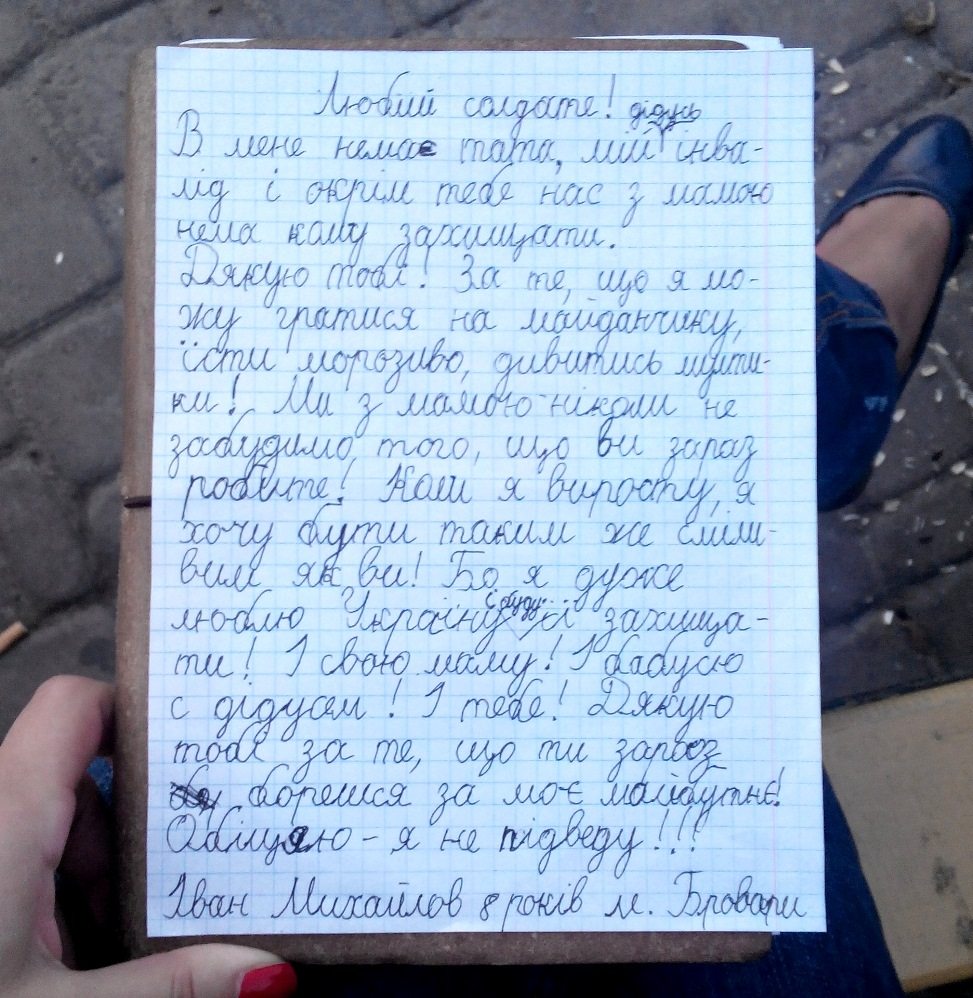 Любий солдате!
В мене немає тата, мій дідусь інва-
лід і окрім тебе нас з мамою
нема кому захищати.
Дякую тобі! За те, що я мо-
жу гратися на майданчику,
їсти морозиво, дивитись мульти-
ки! Ми з мамою ніколи не
забудимо того, що ви зараз
робите! Коли я виросту, я
хочу бути таким же сміли-
вим як ви! Бо я дуже
люблю Україну і буду її захища-
ти! І свою маму! І бабусю
с дідусем! І тебе! Дякую
тобі за те, що ти зараз
борешся за моє майбутнє!
Обіцяю - я не підведу!!!
Іван Михайлов 8 років м. Бровари